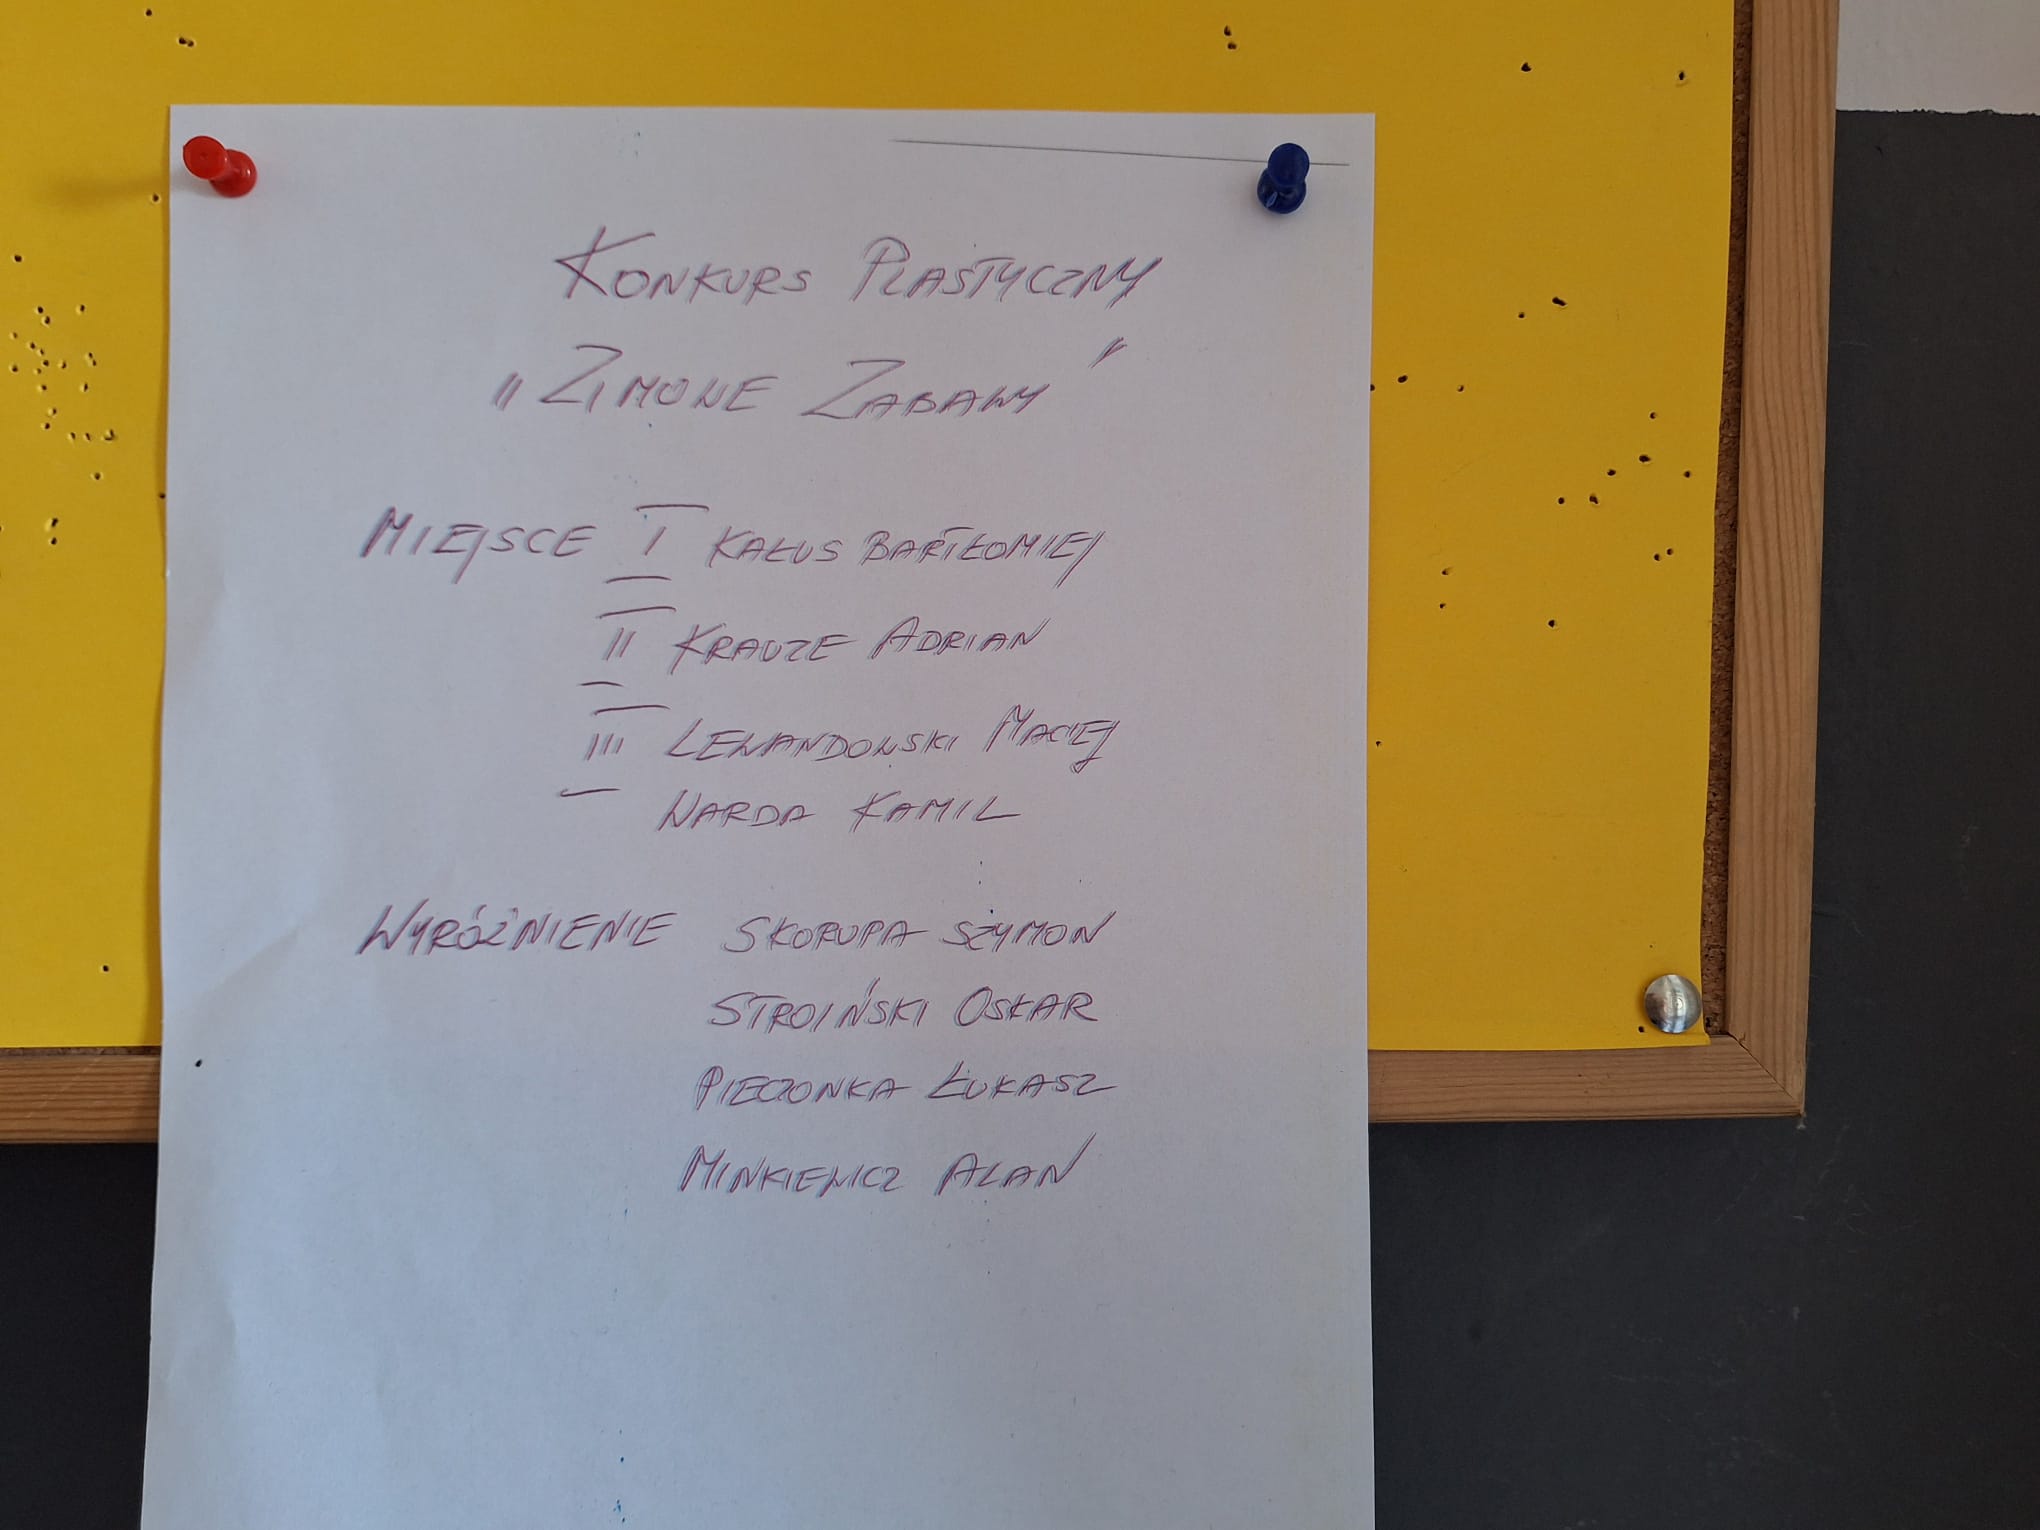 KONKURS PLASTYCZNY
„ZIMOWE ZABAWY”
MIEJSCE I KAŁUS BARTŁOMIEJ
II KRAUZE ADRIAN
III LEWANDOWSKI MACIEJ
WARDA KAMIL
WYRÓŻNIENIE SKORUPA SZYMON
STROIŃSKI OSKAR
PIECZONKA ŁUKASZ
MINKIEWICZ ALAN